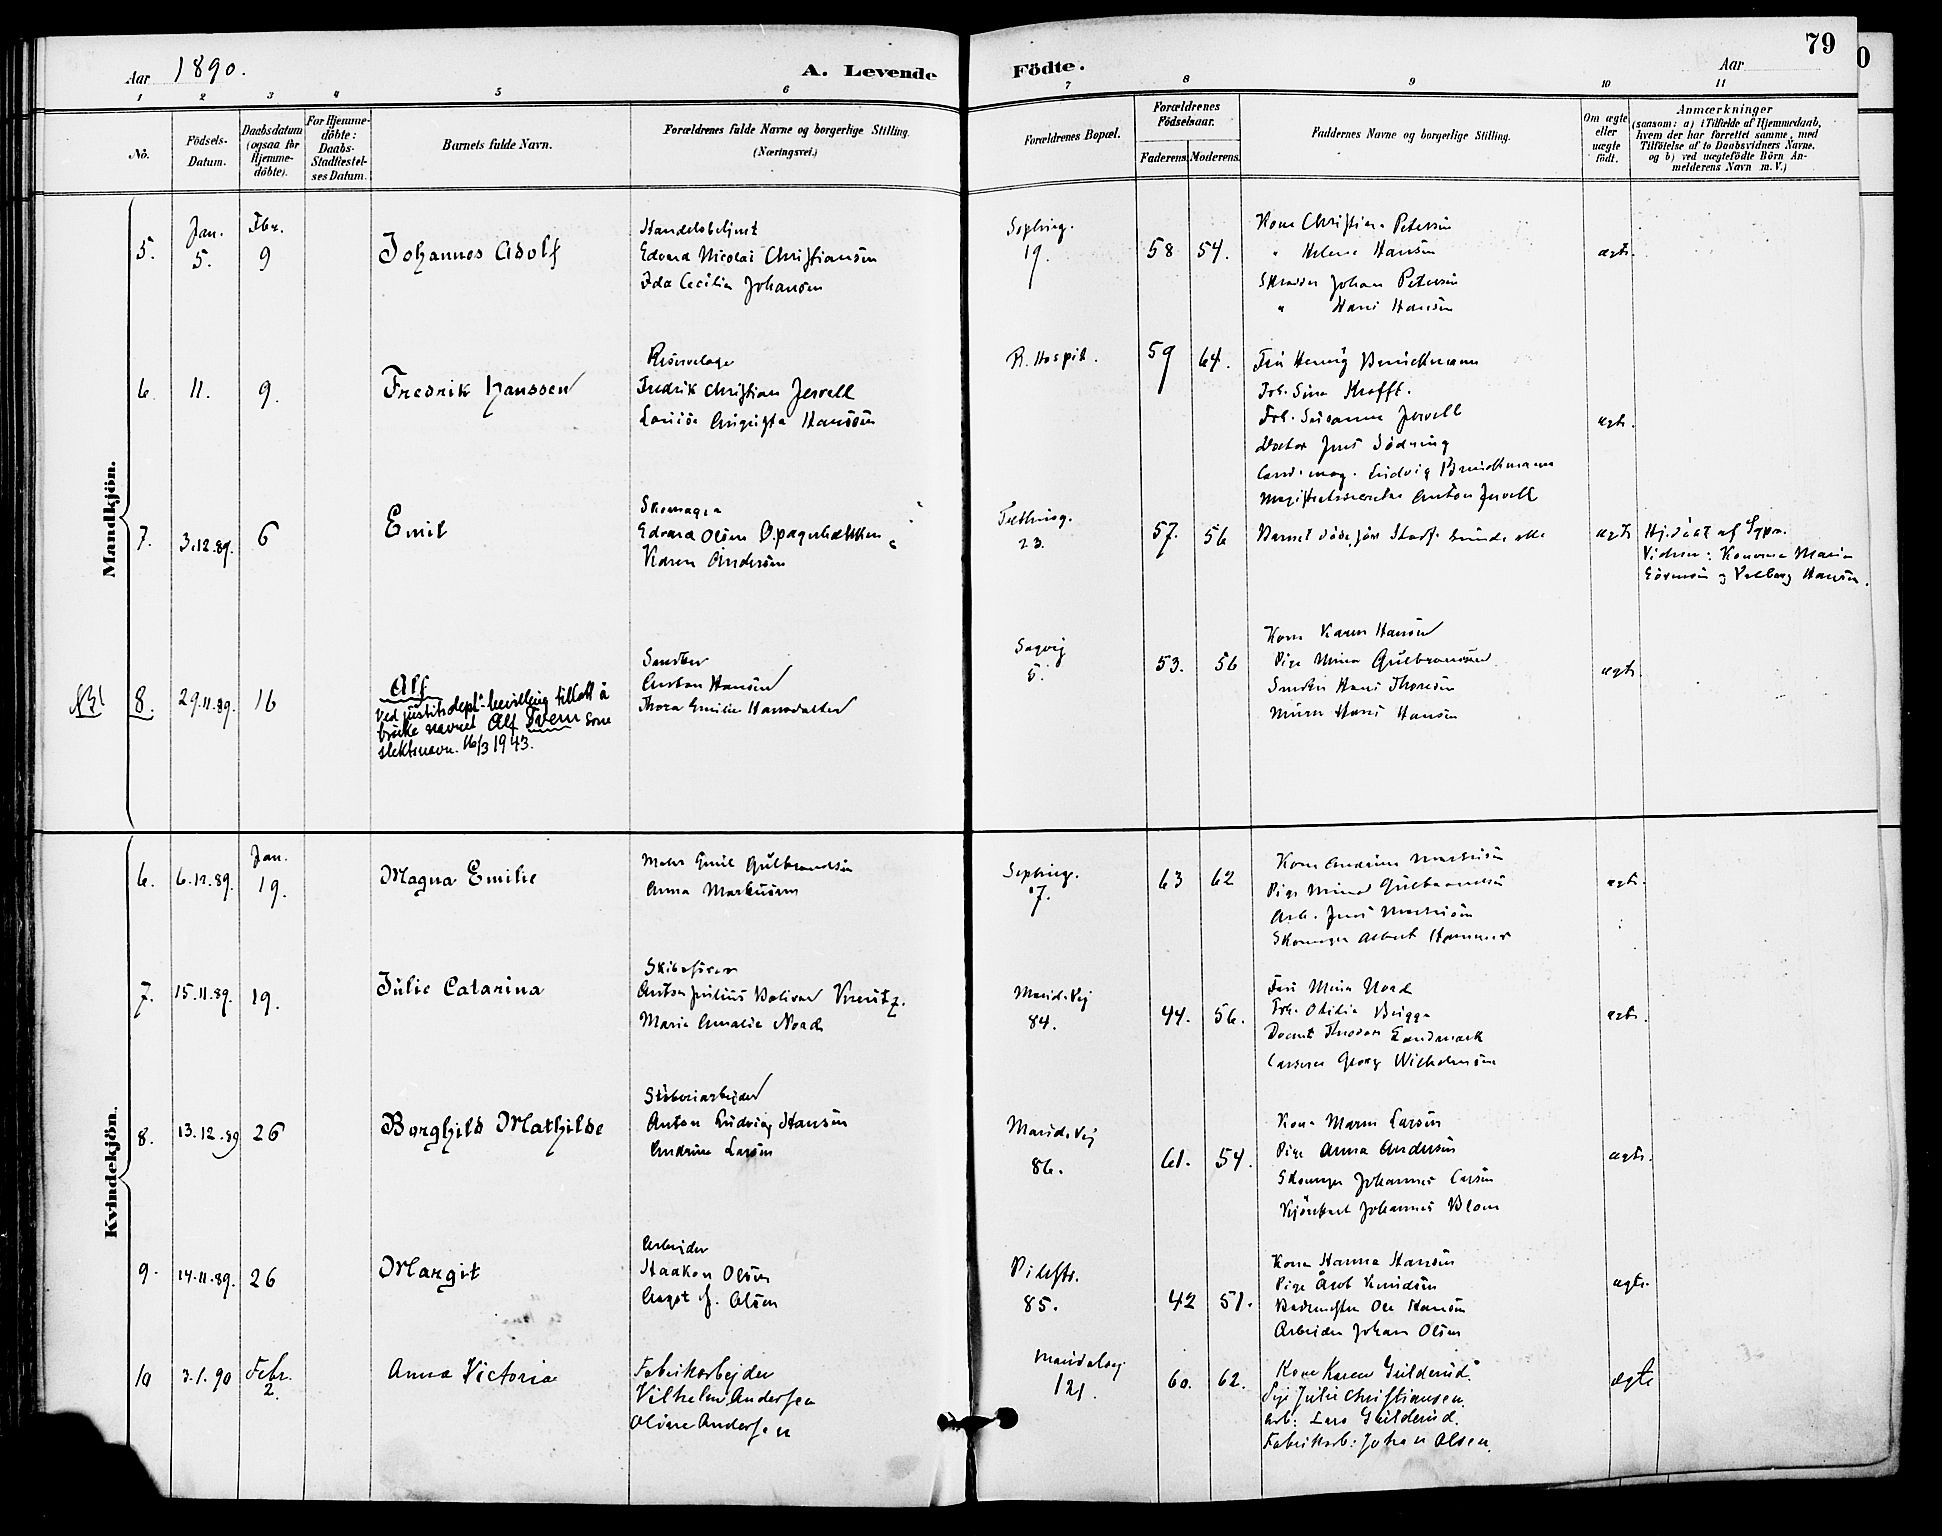 79
Aar 1890.
A. Levende Födte.
Aar
1 2 3 4 5 6 7 8 9 10 11
No.
Födsels-Datum.
Daabsdatum (ogsaa för Hjemme-döbte).
For Hjemme-döbte: Daabs-Stadfæstel-ses Datum.
Barnets fulde Navn.
Forældrenes fulde Navne og borgerlige Stilling. (Næringsvei.)
Forældrenes Bopæl.
Forældrenes Födselsaar.
Faderens. Moderens.
Faddernes Navne og borgerlige Stilling.
Om ægte eller uægte födt.
Anmærkninger
(saasom: a) i Tilfælde af Hjemmedaab, hvem der har forrettet samme, med Tilföielse af to Daabsvidners Navne, og b) ved uægtefödte Börn An-melderens Navn m. V.)
Mandkjön.
Jan. Fbr.
5. 5. 9 Johannes Adolf
Edvard Nicolai Christiansen
Ida Cecilia Johansen
19.
58 54.
Kone Christine Petersen
" Helene Hansen
Johan Petersen
" Hans Hansen
ægte.
6. 11. 9. Fredrik Hanssen
Fredrik Christian Jervell
Louise Augusta Hanssen
R. Hospit.
59 64.
Fru Henny Brinchmann
Frk. Sina Krafft.
Frk. Susanna Jervell
Doctor Jens
Cand. mag. Ludvig Brinchmann
Anton Jervell
ægte.
7. 3.12.89. 6 Emil
Skomager
Edvard Olsen
Karen Andersen
23.
57. 56
ægte
Hj.döbt af
Maria
Hansen.
NB!
8. 29.11.89. 16 Alf
ved justitsdept. bevilling tillatt å
bruke navnet Alf Svern som
slektsnavn. 16/3 1943.
Anton Hansen
Thora Emilie Hansdatter
Sagvej
5.
53. 56
Kone Karen Hansen
Pige Mina Gulbrandsen
Hans Thoresen
Murer Hans Hansen
ægte.
Kvindekjön.
Jan.
6. 6.12.89. 19. Magna Emilie
Maler Emil Gulbrandsen
Anna Markusen
7.
63 62
Pige Mina Gulbrandsen
Arb. Jens
Skomager Albert Hammer
ægte.
7. 15.11.89. 19. Julie Catarina
Skibsförer
Anton Julius Bolivar Kreutz.
Marie Amalie Noach
Marid. Vej
84.
44. 56.
Fru Mina
Frk. Otilia Brigga
Docent Thodor Landmark
Casserer Georg Wilhelmsen
ægte.
8. 13.12.89 26 Borghild Mathilde
Störeriarbejder
Anton Ludvig Hansen
Andrine Larsen
Marid. Vej
86.
61. 54.
Kone Maren Larsen
Pige Anna Andersen
Skomager Johannes Larsen
Johannes Blom
ægte.
9. 14.11.89. 26 Margit
Arbeider
Haakon Olsen
Aagot J. Olsen
Pilestr.
85.
42 51.
Kone Hanna Hansen
Pige Knudsen
Ole Hansen
Arbeider Johan Olsen
ægte.
10 3.1.90 Febr.
2. Anna Victoria
Fabrikarbejder
Vilhelm Andersen
Oline Andersen
Maridalsvej
121.
60. 62.
Kone Karen Gulderud.
Julie Christiansen.
Arb: Lars Gulderud.
Fabrikarb: Johan Olsen.
ægte